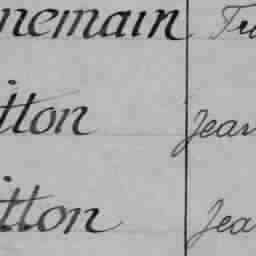 nemain Tr
itton Jean
itton Jea